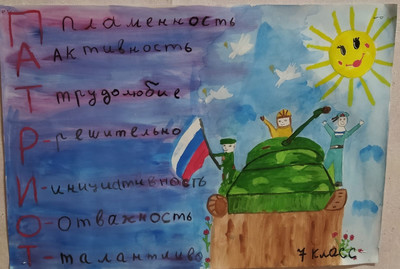 П Пламенность
А Активность
Т трудолюбие
Р-решительно
И-инициативность
О-Отважность
Т-талантливо
7 класс